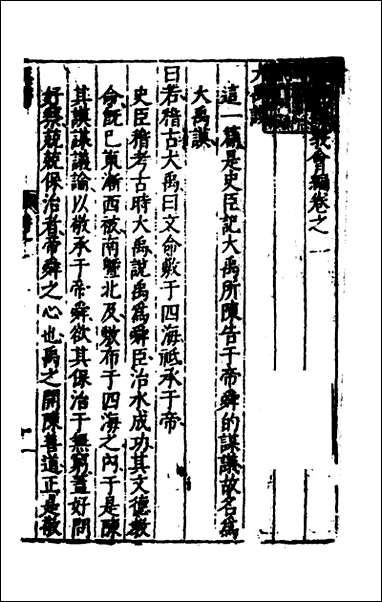 教會編卷之一
大禹謨
這一篇是史臣記大禹所陳告于帝舜的謀謨故名為
大禹謨
曰若稽古大禹曰文命敷于四海祗承于帝
史臣稽考古時大禹說禹為舜臣治水成功其文德教
命既已東漸西被南暨北及敷布于四海之內于是陳
其謨謀議論以敬承于帝舜欲其保治于無窮蓋好問
好察兢兢保治者帝舜之心也禹之開陳善道正是敬